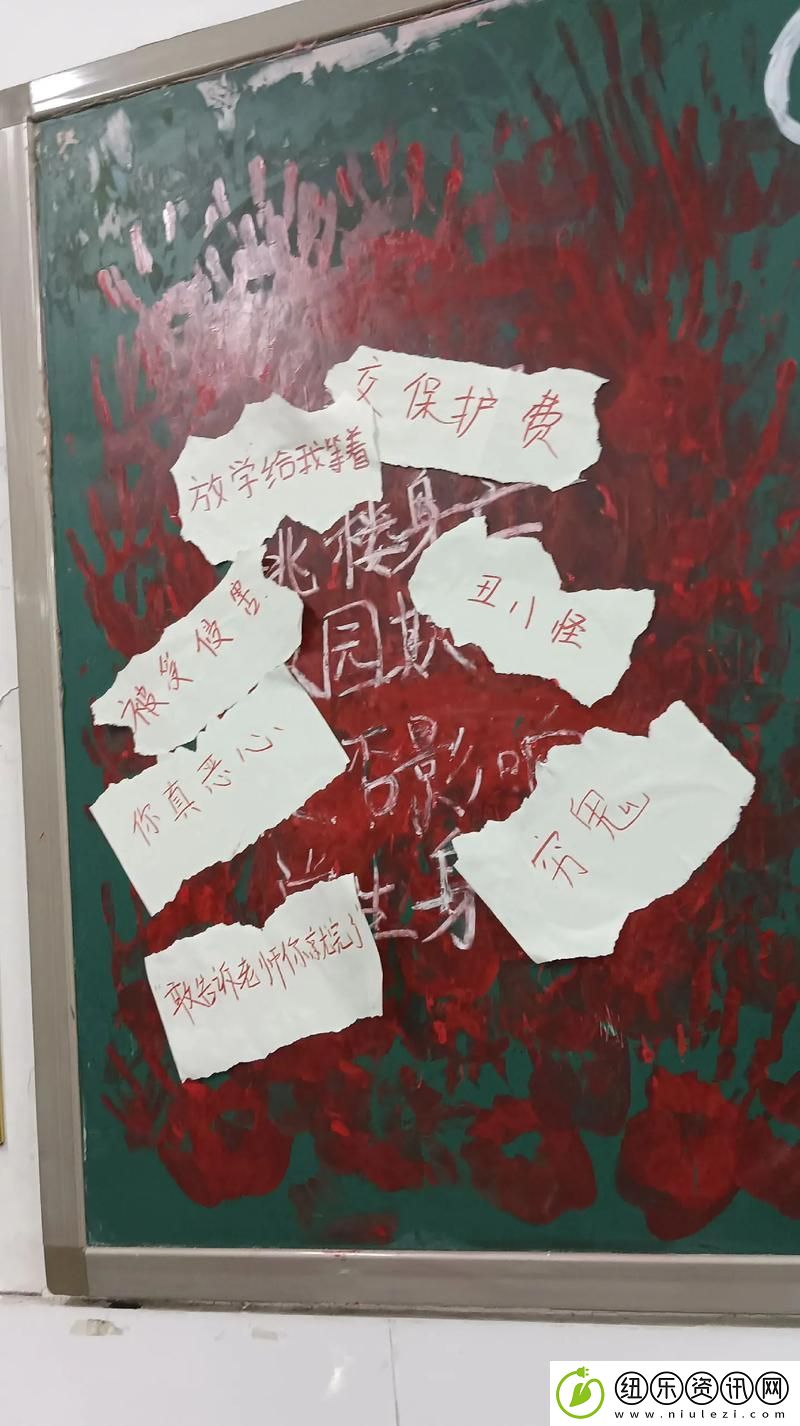 交保护费
放学给我等着
跳楼身亡
丑八怪
被受侵害
园欺
你真恶心
否影响
穷鬼
学生身
敢告诉老师你就完了
纽乐资讯网
www.niulezi.com